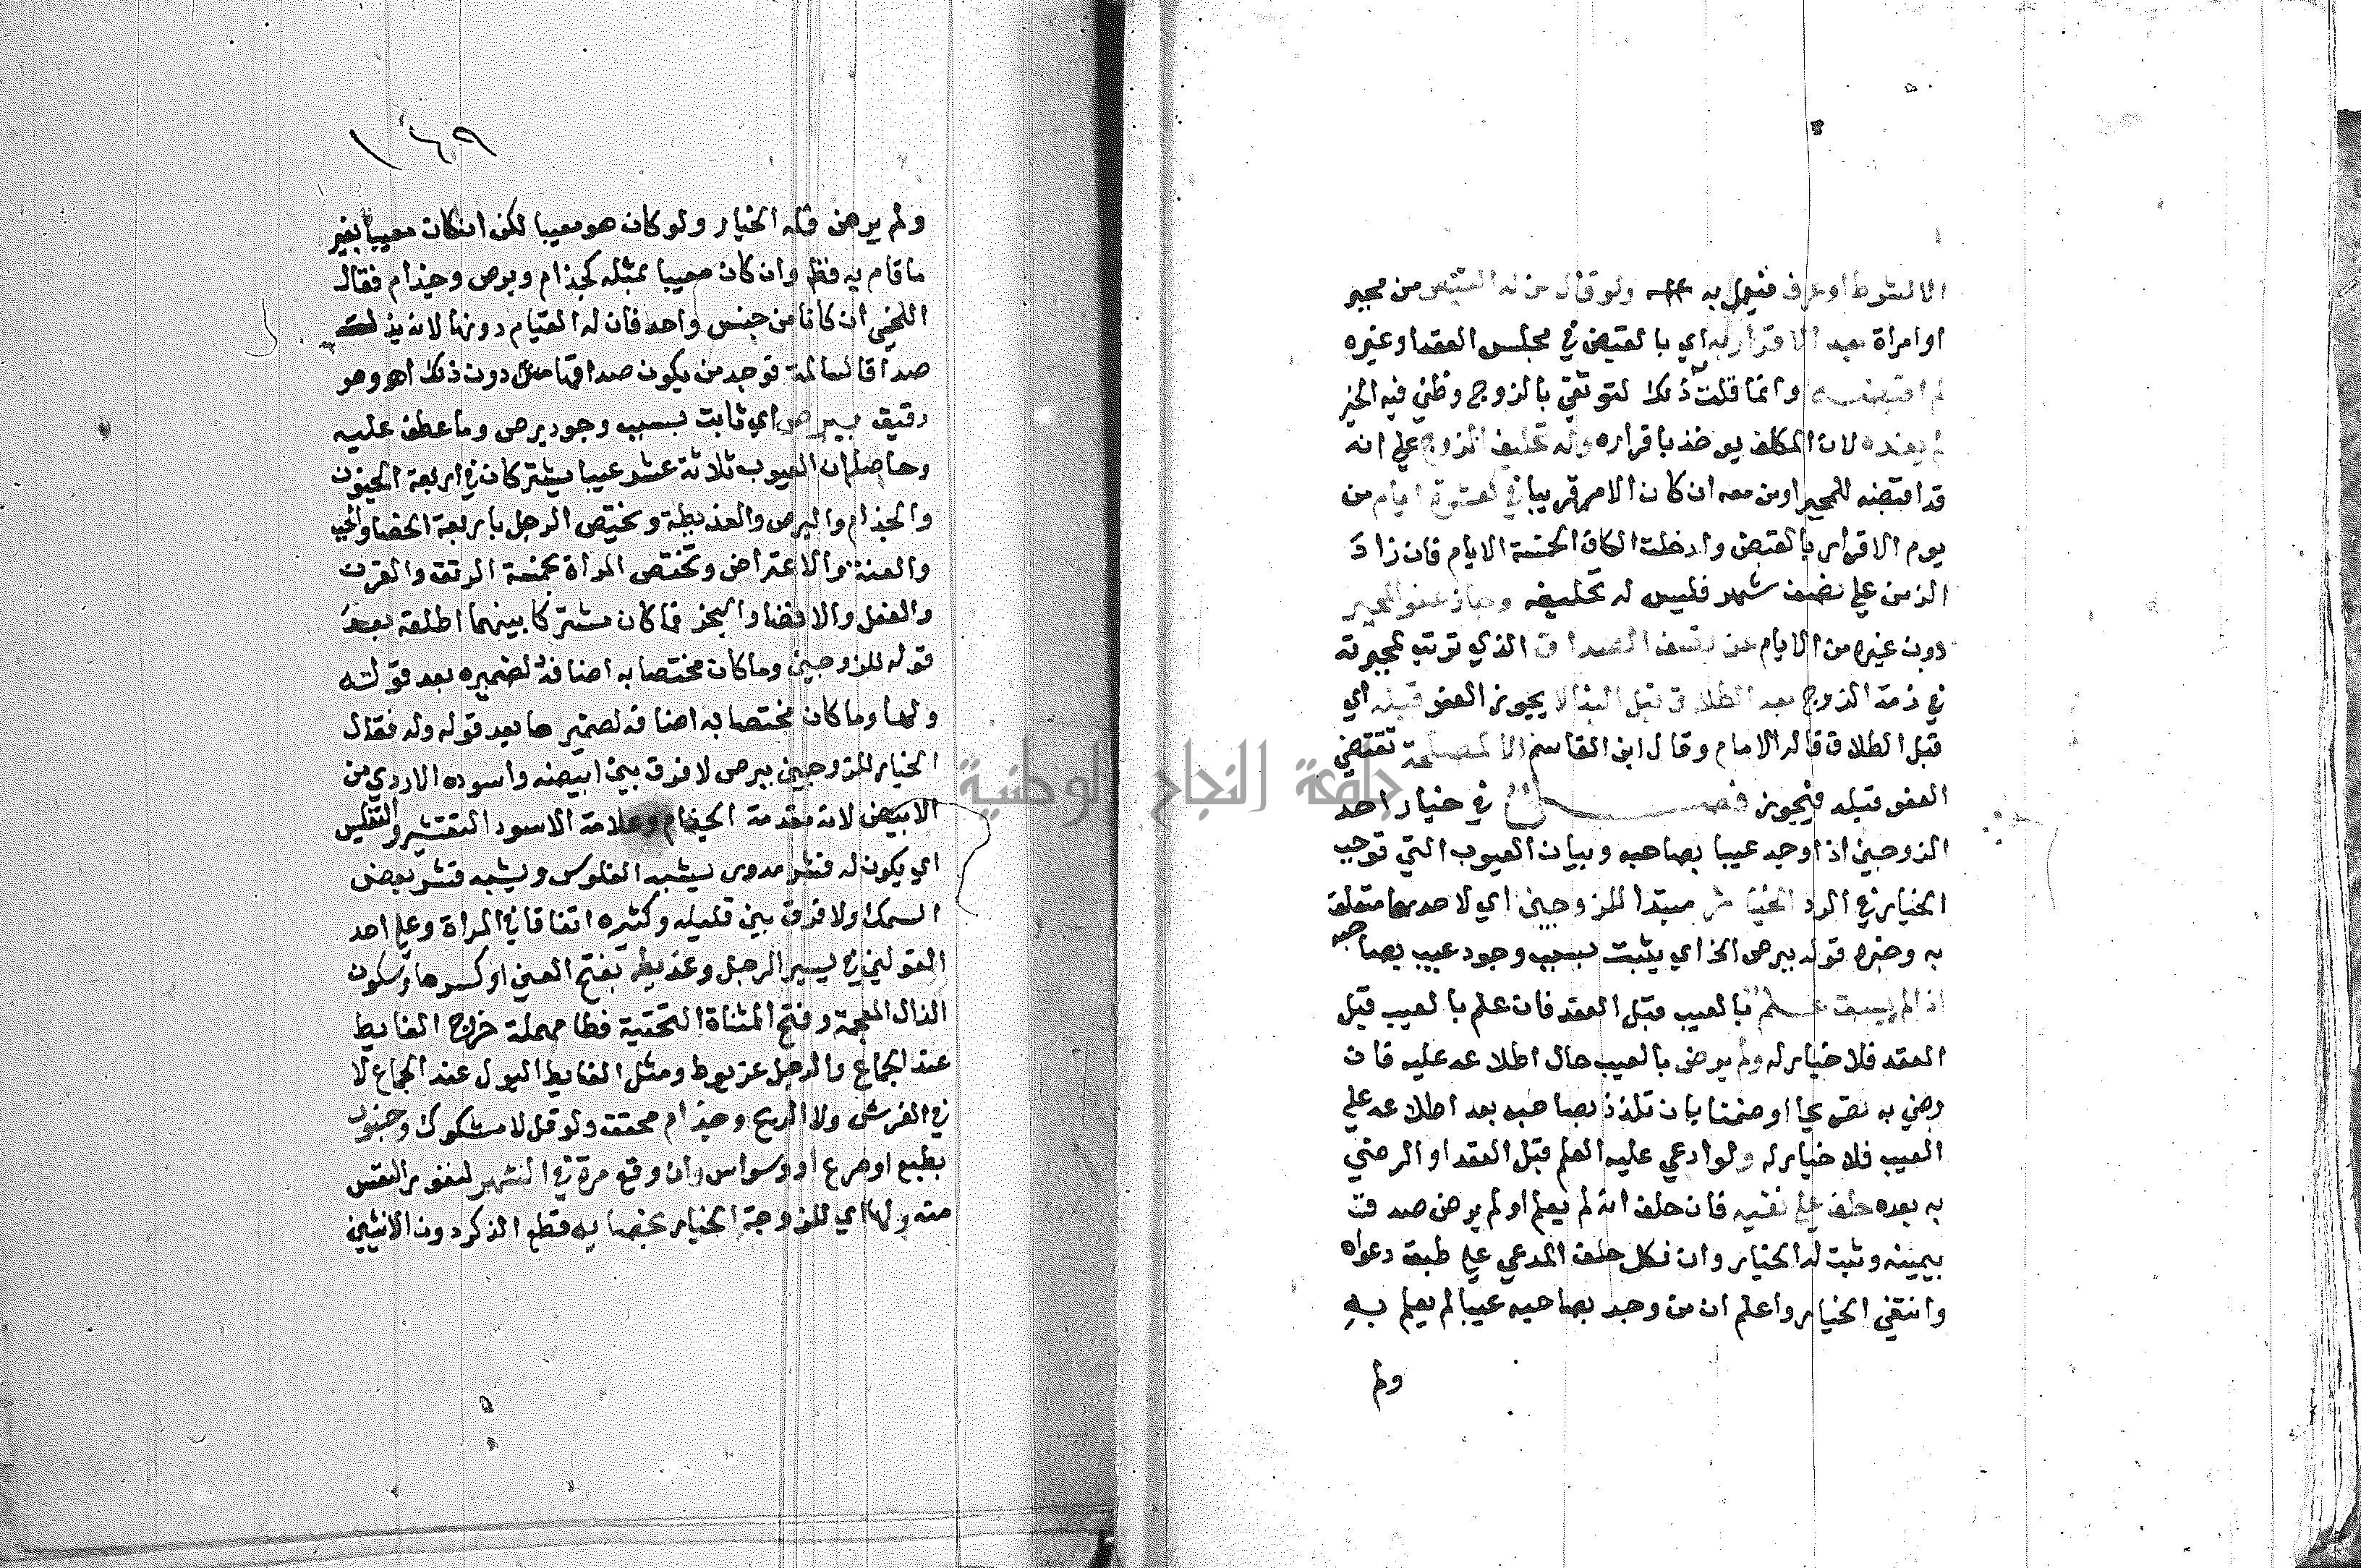 الا لشرط او عرف فيعمل به ولو قال من له القبض من مجبر
او امراة بعد الاقرار به اي بالقبض في مجلس العقد او غيره
لم اقبضه وانما قلت ذلك لتوثقي بالزوج وظني فيه الخير
لم يفده لان المكلف يوخذ باقراره وله تحليف الزوج علي انه
قد اقبضه للمجبر او من معه ان كان الامر قريبا في كعشرة ايام من
يوم الاقرار بالقبض وادخلت الكاف الخمسة الايام فان زاد
الزمن علي نصف شهر فليس له تحليفه وجاز عفو المجبر
دون غيره من الايام عن نصف الصداق الذي ترتب لمجبرته
في ذمة الزوج بعد الطلاق قبل البنا لا يجوز العفو قبله اي
قبل الطلاق قاله الامام وقال ابن القاسم الا لمصلحة تقتضي
العفو قبله فيجوز فصل في خيار احد
الزوجين اذا وجد عيبا بصاحبه وبيان العيوب التي توجب
الخيار في الرد الخيار مبتدا للزوجين اي لاحدهما متعلق
به وخبره قوله ببرص الخ اي يثبت بسبب وجود عيب بصاحبه
اذا لم يسبق علم بالعيب قبل العقد فان علم بالعيب قبل
العقد فلا خيار له ولم يرض بالعيب حال اطلاعه عليه فان
رضي به تصريحا او ضمنا بان تلذذ بصاحبه بعد اطلاعه علي
العيب فلا خيار له ولو ادعي عليه العلم قبل العقد او الرضي
به بعده حلف علي نفيه فان حلف انه لم يعلم او لم يرض صدقت
بيمينه وثبت له الخيار وان نكل حلف المدعي علي طبق دعواه
وانتفي الخيار واعلم ان من وجد بصاحبه عيبا لم يعلم به
ولم
١٤٩
ولم يرض فله الخيار ولو كان هو معيبا لكن ان كان معيبا بغير
ما قام به فظ وان كان معيبا بمثله كجذام وبرص وجذام فقال
اللخمي ان كانا من جنس واحد فان له القيام دونها لانه بذلت
صداقا لسالمة توجد من يكون صداقها دون ذلك اهـ وهو
دقيق ببرص اي ثابت بسبب وجود برص وما عطف عليه
وحاصله ان العيوب ثلاثة عشر عيبا يشتركان في اربعة الجنون
والجذام والبرص والعذيطة ويختص الرجل باربعة الخصا والجب
والعنة والاعتراض وتختص المراة بخمسة الرتق والقرن
والعفل والافضا والبخر فما كان مشتركا بينهما اطلقه بعد
قوله للزوجين وما كان مختصا به اضافه لضميره بعد قوله
ولها وما كان مختصا به اضافه لضميرها بعد قوله وله فقال
الخيار للزوجين ببرص لا فرق بين ابيضه واسوده الاردي من
الابيض لانه مقدمة الجذام وعلامة الاسود التقشر والتفليس
اي يكون له قشر مدور يشبه الفلوس ويشبه قشر بعض
السمك ولا فرق بين قليله وكثيره اتفاقا في المراة وعلي احد
القولين في يسير الرجل وعذيطه بفتح العين او كسرها وسكون
الذال المعجمة وفتح المثناة التحتية فطا مهملة خروج الغايط
عند الجماع والرجل عزيوط ومثل الغايط البول عند الجماع لا
في الفرش ولا الريح وجذام محقق ولو قل لا مشكوك وجنون
بطبع او صرع او وسواس وان وقع مرة في الشهر لنفور النفس
منه ولها اي للزوجة الخيار بخصايه قطع الذكر دون الانثيين
جامعة النجاح الوطنية